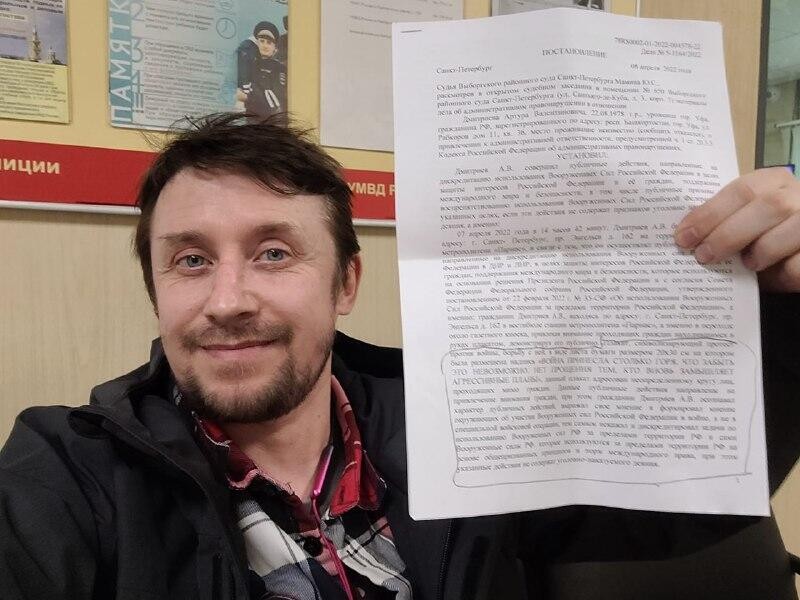 ПАМЯТКА
ЛИЦИИ
УМВД Р
78RS0002-01-2022-004578-22
Дело № 5-1164/2022
ПОСТАНОВЛЕНИЕ
Санкт-Петербург 08 апреля 2022 года
Судья Выборгского районного суда Санкт-Петербурга Мамина Ю.С.,
рассмотрев в открытом судебном заседании в помещении № 650 Выборгского
районного суда Санкт-Петербурга (ул. Сантьяго-де-Куба, д. 3, корп. материалы
дела об административном правонарушении в отношении
Дмитриева Артура Валентиновича, 22.08.1978 г.р., уроженца гор. Уфа,
гражданина РФ, зарегистрированного по адресу: респ. Башкортостан, гор. Уфа, ул.
Рабкоров дом 11, кв. 38, место проживание неизвестно (сообщить отказался), о
привлечении к административной ответственности, предусмотренной ч 1 ст. 20.3.3
Кодекса Российской Федерации об административных правонарушениях.
УСТАНОВИЛ:
Дмитриев А.В. совершил публичные действия, направленные на
дискредитацию использования Вооруженных Сил Российской Федерации в целях
защиты интересов Российской Федерации и её граждан, поддержания
международного мира и безопасности, в том числе публичные призывы
воспрепятствованию использования Вооруженных Сил Российской Федерации в
указанных целях, если эти действия не содержат признаков уголовно
деяния, а именно:
07 апреля 2022 года в 14 часов 42 минут, Дмитриев А.В.
адресу: г. Санкт- Петербург, пр. Энгельса д. 162 на
метрополитена «Парнас», в связи с тем, что он осуществлял публичные
направленные на дискредитацию использования Вооруженных сил
Федерации в ДНР и ЛНР, в целях защиты интересов Российской Федерации и
граждан, поддержания международного мира и безопасности, которые используются
на основании решения Президента Российской Федерации и с согласия Совета
Федерации Федерального собрания Российской Федерации, утвержденного
постановлением от 22 февраля 2022 г. № 35-СФ «Об использовании Вооруженных
Сил Российской Федерации за пределами территории Российской Федерации», а
именно: гражданин Дмитриев А.В., находясь по адресу: г. Санкт-Петербург, пр.
Энгельса д. 162 в вестибюле станции метрополитена «Парнас», а именно в переходе
около газетного киоска, привлекая внимание проходящих граждан находящимся в
руках плакатом, демонстрировал его публично плакат, символизирующий протест
против войны, борьбу с ней в виде листа бумаги размером 20х30 см на котором
была размещена надпись «ВОЙНА ПРИНЕСЛА СТОЛЬКО ГОРЯ, ЧТО ЗАБЫТЬ
ЭТО НЕВОЗМОЖНО. НЕТ ПРОЩЕНИЯ ТЕМ, КТО ВНОВЬ ЗАМЫШЛЯЕТ
АГРЕССИВНЫЕ ПЛАНЫ», данный плакат адресован неопределенному кругу лиц,
проходящих мимо граждан. Данные публичные действия направлены на
привлечение внимания граждан, при этом гражданин Дмитриев А.В. осознавал
характер публичных действий выражал свое мнение в формировал мнению
окружающих об участии Вооруженных сил Российской Федерации в войне, а не в
специальной войсковой операции, тем самым показал и дискредитировал задачи по
использованию Вооруженных сил РФ за пределами территории РФ и сами
Вооруженные силы РФ которые используются за пределами территории РФ на
основе общепризнанных принципов и норм международного права, при этом
указанные действия не содержат уголовно-наказуемого деяния.